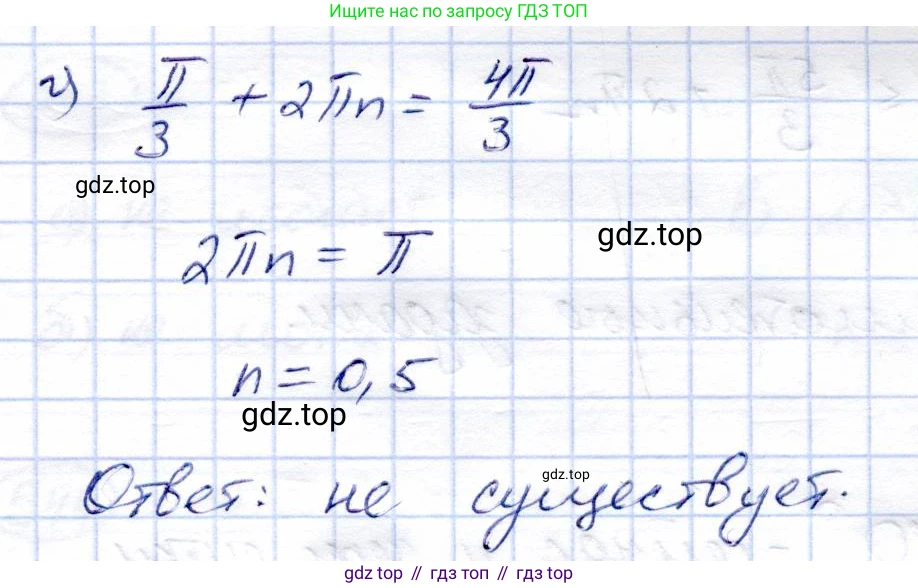 Ищите нас по запросу ГДЗ ТОП
г) π/3 + 2πn = 4π/3
gdz.top
2πn = π
gdz.top
n = 0,5
gdz.top
Ответ: не существует.
gdz.top
gdz.top // гдз топ // gdz top